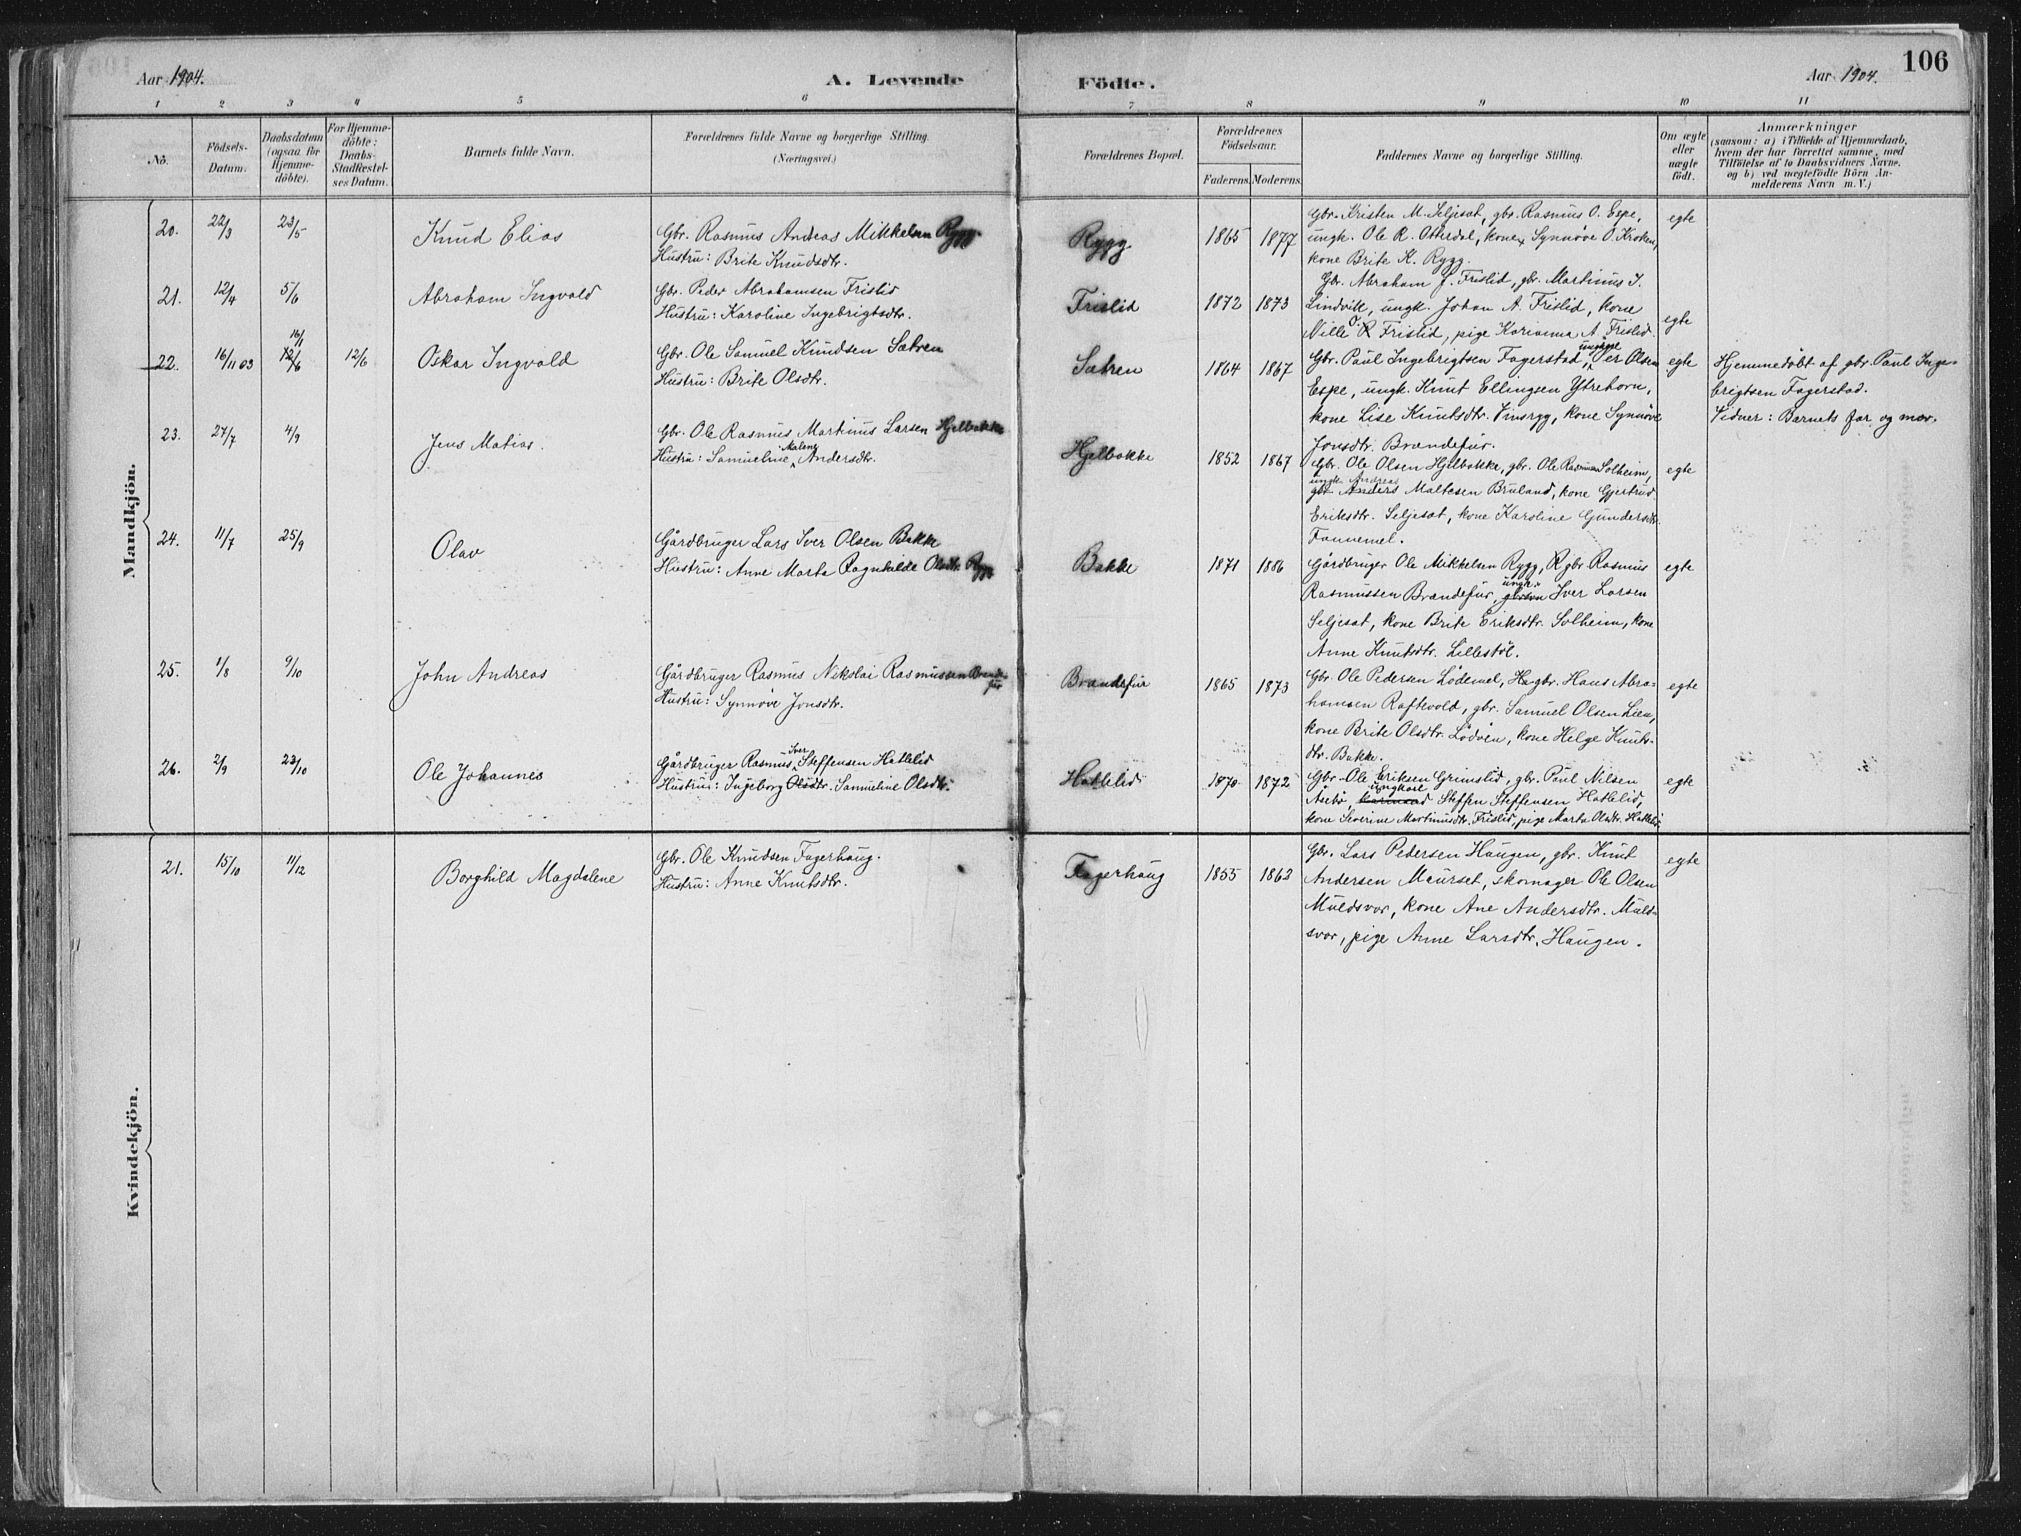 Aar 1904.
A. Levende
Födte.
Aar 1904.
106
1 2 3 4 5 6 7 8 9 10 11
No.
Födsels-
Datum.
Daabsdatum
(ogsaa for
Hjemme-
döbte).
For Hjemme-
döbte:
Daabs-
Stadfæstel-
ses Datum.
Barnets fulde Navn.
Forældrenes fulde Navne og borgerlige Stilling.
(Næringsvei.)
Forældrenes Bopæl.
Forældrenes
Födselsaar.
Faderens. Moderens.
Faddernes Navne og borgerlige Stilling.
Om ægte
eller
uægte
födt.
Anmærkninger
(saasom: a) i Tilfælde af Hjemmedaab,
hvem der har forrettet samme, med
Tilföielse af to Daabsvidners Navne,
og b) ved uægtefödte Börn An-
melderens Navn m. V.)
Mandkjön.
20. 22/3 23/5
Knud Elias
Gbr. Rasmus Andreas Mikkelsen Rygg.
Hustru: Brite Knudsdtr.
Rygg
1865 1877
Gbr. Kristen M. Seljeset, gbr. Rasmus O. Espe,
ungk. Ole R. Otterdal, kone Synnøve O. Kroken,
kone Brite K. Rygg.
egte
21. 12/4 5/6
Abraham Ingvald
Gbr. Peder Abrahamsen Frislid
Hustru: Karoline Ingebrigtsdtr.
Frislid
1872 1873
Gbr. Abraham J. Frislid, gbr. Martinus I.
Lindvik, ungk. Johan A. Frislid, kone
Nille R Frislid, pige Karianna A Frislid.
egte
22. 16/11 03 16/1 12/6 12/6
Oskar Ingvald
Gbr. Ole Samuel Knudsen Sætren
Hustru: Brite Olsdtr.
Sætren
1864 1867
Gbr. Paul Ingebrigtsen Fagerstad, Per Olsen
Espe, ungk. Knut Ellingsen Ytrehorn,
kone Lise Knutsdtr. Vinsryg, kone Synnøve
Jonsdtr. Brændefur.
egte
Hjemmedøbt af gbr. Paul Inge-
brigtsen Fagerstad.
Vidner: Barnets far og mor.
23. 27/7 4/9
Jens Matias.
Gbr. Ole Rasmus Martinus Larsen Hjelbakke
Hustru: Samueline Malene Andersdtr.
Hjelbakke
1852 1867
Gbr. Ole Olsen Hjelbakke, gbr. Ole Rasmussen Solheim,
ungk. Andreas
gbr. Anders Maltesen Bruland, kone Gjertrud
Eriksdtr. Seljeset, kone Karoline Gundersdtr.
Tannemel.
egte
24. 11/7 25/9
Olav
Gårdbruger Lars Iver Olsen Bakke
Hustru: Anne Marta Ragnhilde Olsdtr. Rygg
Bakke
1871 1886
Gårdbruger Ole Mikkelsen Rygg, gbr Rasmus
Rasmussen Brændefur, ungk. Iver Larsen
Seljeset, kone Brite Eriksdtr. Solheim, kone
Anne Knutsdtr. Lillestøl.
egte
25. 1/8 9/10
John Andreas
Gårdbruger Rasmus Nikolai Rasmussen Brænde-
fur
Hustru: Synnøve Jonsdtr.
Brændefur
1865 1873
Gbr. Ole Pedersen Lødemel, gbr. Hans Abra-
hamsen Raftevold, gbr. Samuel Olsen Lien,
kone Brite Olsdtr. Lødøen, kone Helge Knuts-
dtr. Bakke.
egte
26. 2/9 23/10
Ole Johannes
Gårdbruger Rasmus Iver Steffensen Hatlelid
Hustru: Ingeborg Olsdtr. Samueline Olsdtr.
Hatlelid
1870 1872
Gbr. Ole Eriksen Grimslid, gbr. Paul Nilsen
Åsebø, ungkarl Steffen Steffensen Hatlelid,
kone Severine Martinusdtr. Frislid, pige Marta Olsdtr. Hatlelid.
egte
Kvindekjön.
21. 15/10 11/12
Borghild Magdalene
Gbr. Ole Knudsen Fagerhaug.
Hustru: Anne Knutsdtr.
Fagerhaug
1855 1862
Gbr. Lars Pedersen Haugen, gbr. Knut
Andersen Maurset, skomager Ole Olsen
Muldsvor, kone Ane Andersdtr. Muld-
svor, pige Anne Larsdtr. Haugen.
egte